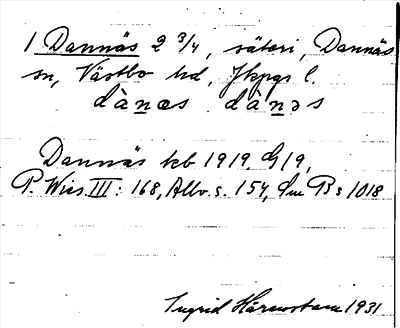 1 Dannäs 2 3/4, säteri, Dannäs
sn, Västbo hd, Jkpgs l.
dànæs dànəs
Dannäs kb 1919, G 19,
P. Wies. III: 168, Allv. s. 154, Sm Bs 1018
Ingrid Härenstam 1931